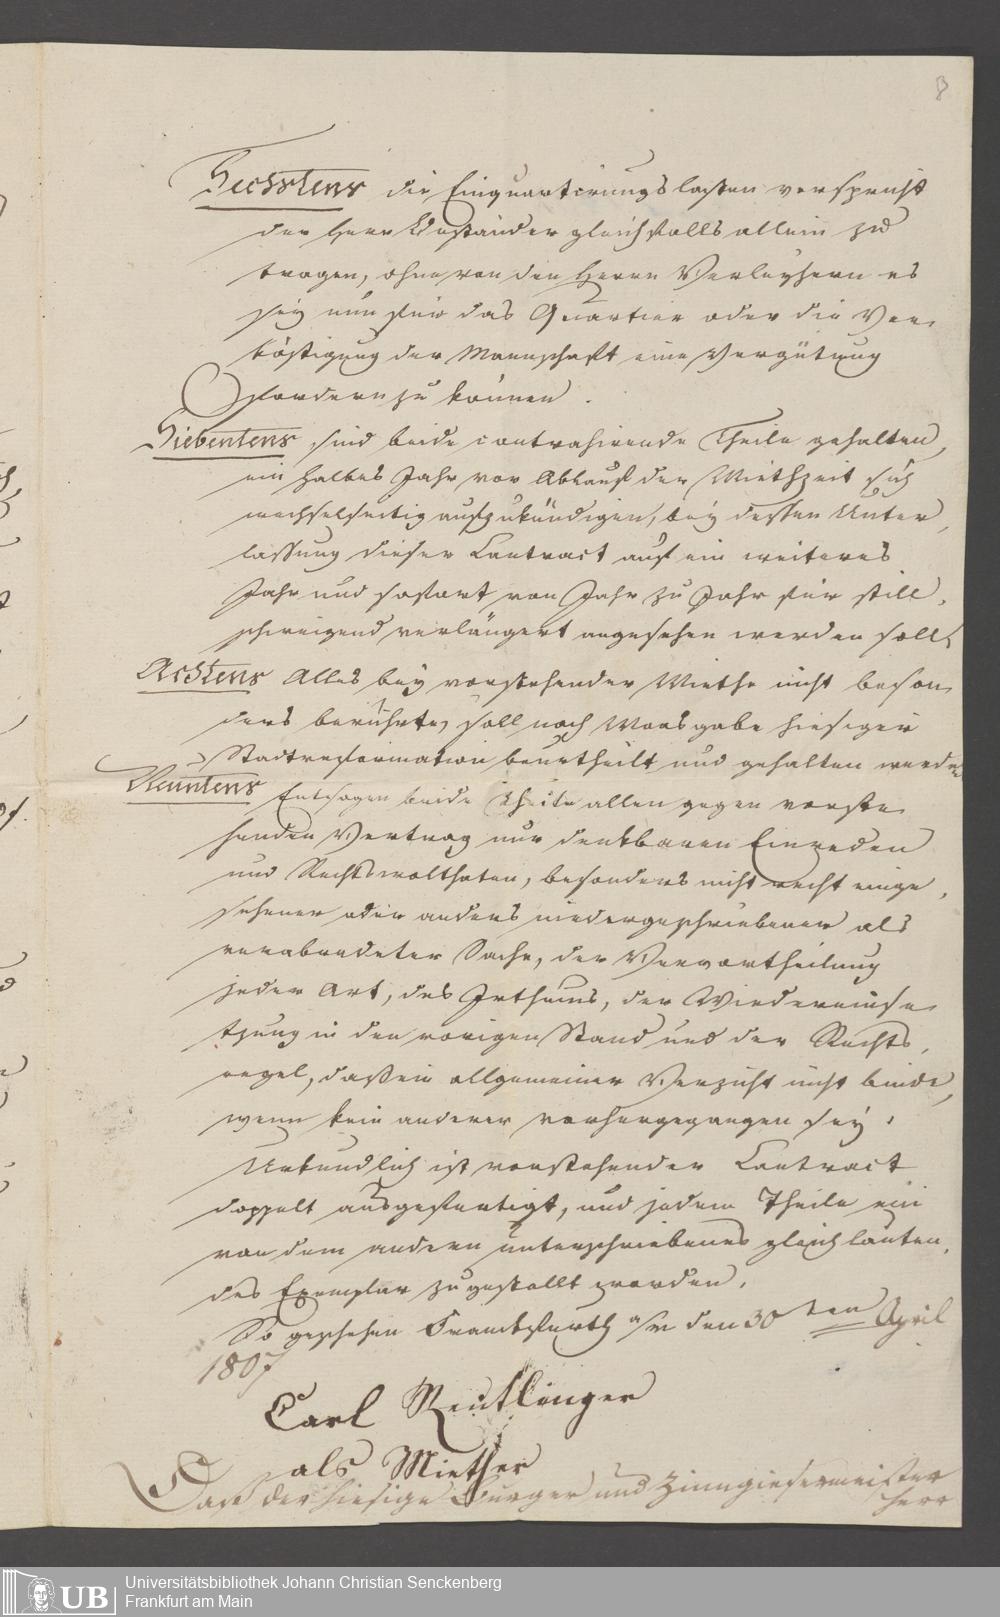 8
Sechstens die Einquartirungslasten verspricht
der Herr Beständer gleichfalls allein zu
tragen, ohne von den Herrn Verleyhern es
sey nun für das Quartier oder die Ver-
köstigung der Mannschaft eine Vergütung
fordern zu können.
Siebentens sind beide contrahirende Theile gehalten,
ein halbes Jahr vor Ablauf der Miethzeit sich
wechselseitig aufzukündigen, bey dessen Unter-
lassung dieser Contract auf ein weiteres
Jahr und sofort von Jahr zu Jahr für still-
schweigend verlängert angesehen werden soll.
Achtens Alles bey vorstehender Miethe nicht beson-
ders berührte, soll nach Maasgabe hiesiger
Stadtreformation beurtheilt und gehalten werden
Neuntens Entsagen beide Theile allen gegen vorste-
henden Vertrag nur denkbaren Einreden
und Rechtswolthaten, besonders nicht recht einge-
sehener oder anders niedergeschriebener als
verabredeter Sache, der Vervortheilung
jeder Art, des Irthums, der Wiedereinse-
tzung in den vorigen Stand und der Rechts-
regel, daß ein allgemeiner Verzicht nicht binde,
wenn kein anderer vorhergegangen sey.
Urkundlich ist vorstehender Contract
doppelt ausgefertigt, und jedem Theile ein
von dem andern unterschriebenes gleichlauten-
des Exemplar zugestellt worden.
So geschehen Franckfurth a/m den 30ten April
1807
Carl Reutlinger
als Miether
Daß der hiesige Burger und Zinngiesermeister
Herr
UB
Universitätsbibliothek Johann Christian Senckenberg
Frankfurt am Main